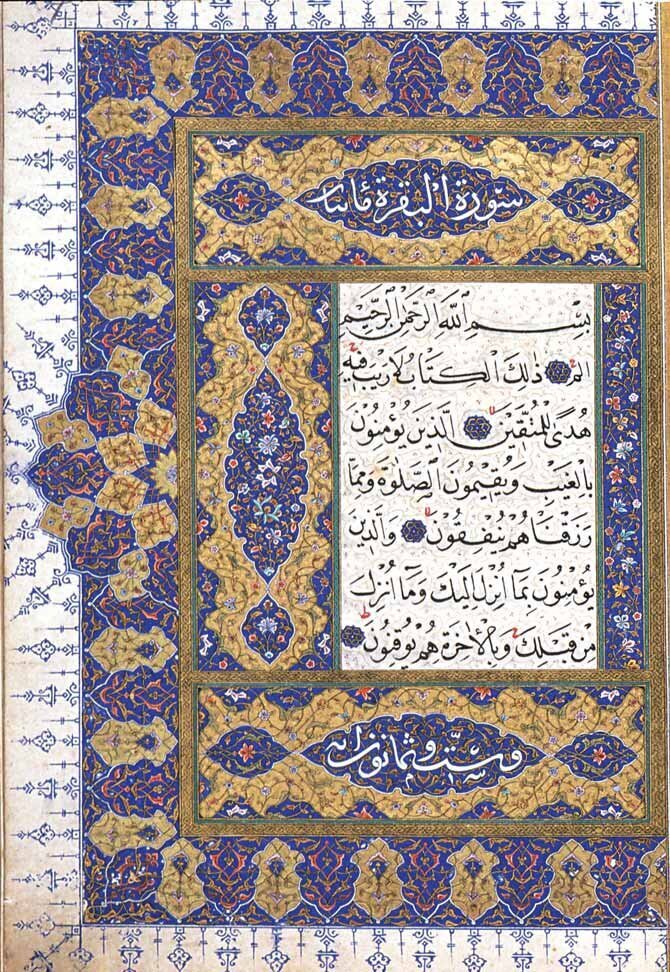 سورة البقرة مائتان
بِسْمِ اللَّهِ الرَّحْمَنِ الرَّحِيمِ
الم ذٰلِكَ الْكِتَابُ لَا رَيْبَ فِيهِ
هُدًى لِلْمُتَّقِينَ الَّذِينَ يُؤْمِنُونَ
بِالْغَيْبِ وَيُقِيمُونَ الصَّلٰوةَ وَمِمَّا
رَزَقْنَاهُمْ يُنْفِقُونَ وَالَّذِينَ
يُؤْمِنُونَ بِمَا أُنْزِلَ إِلَيْكَ وَمَا أُنْزِلَ
مِنْ قَبْلِكَ وَبِالْآخِرَةِ هُمْ يُوقِنُونَ
وستّ وثمانون آية